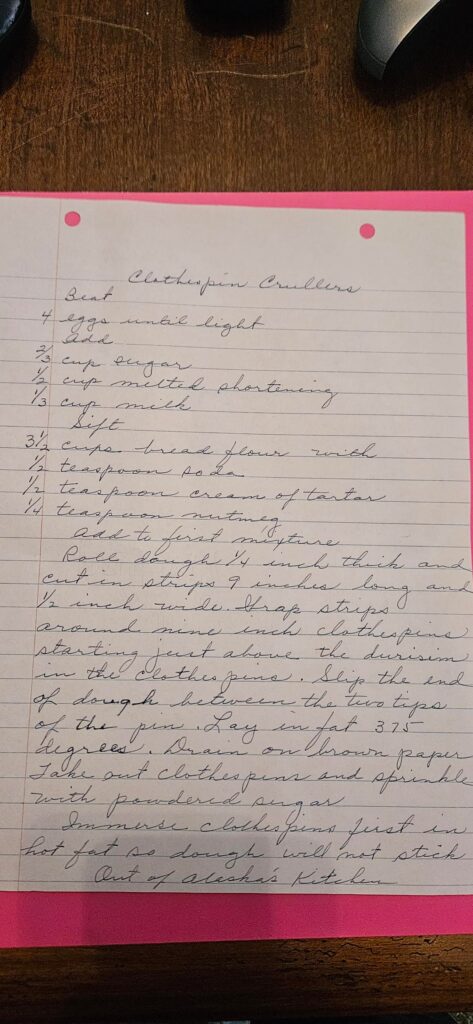 Clothespin Crullers
Beat
4 eggs until light
add
2/3 cup sugar
1/2 cup melted shortening
1/3 cup milk
Sift
3 1/2 cups bread flour with
1/2 teaspoon soda
1/2 teaspoon cream of tartar
1/4 teaspoon nutmeg
add to first mixture
Roll dough 1/4 inch thick and
cut in strips 9 inches long and
1/2 inch wide. Wrap strips
around nine inch clothespins
starting just above the durisim
in the clothespins. Slip the end
of dough between the two tips
of the pin. Lay in fat 375
degrees. Drain on brown paper
Take out clothespins and sprinkle
with powdered sugar
Immerse clothespins first in
hot fat so dough will not stick
Out of Alaska's Kitchen